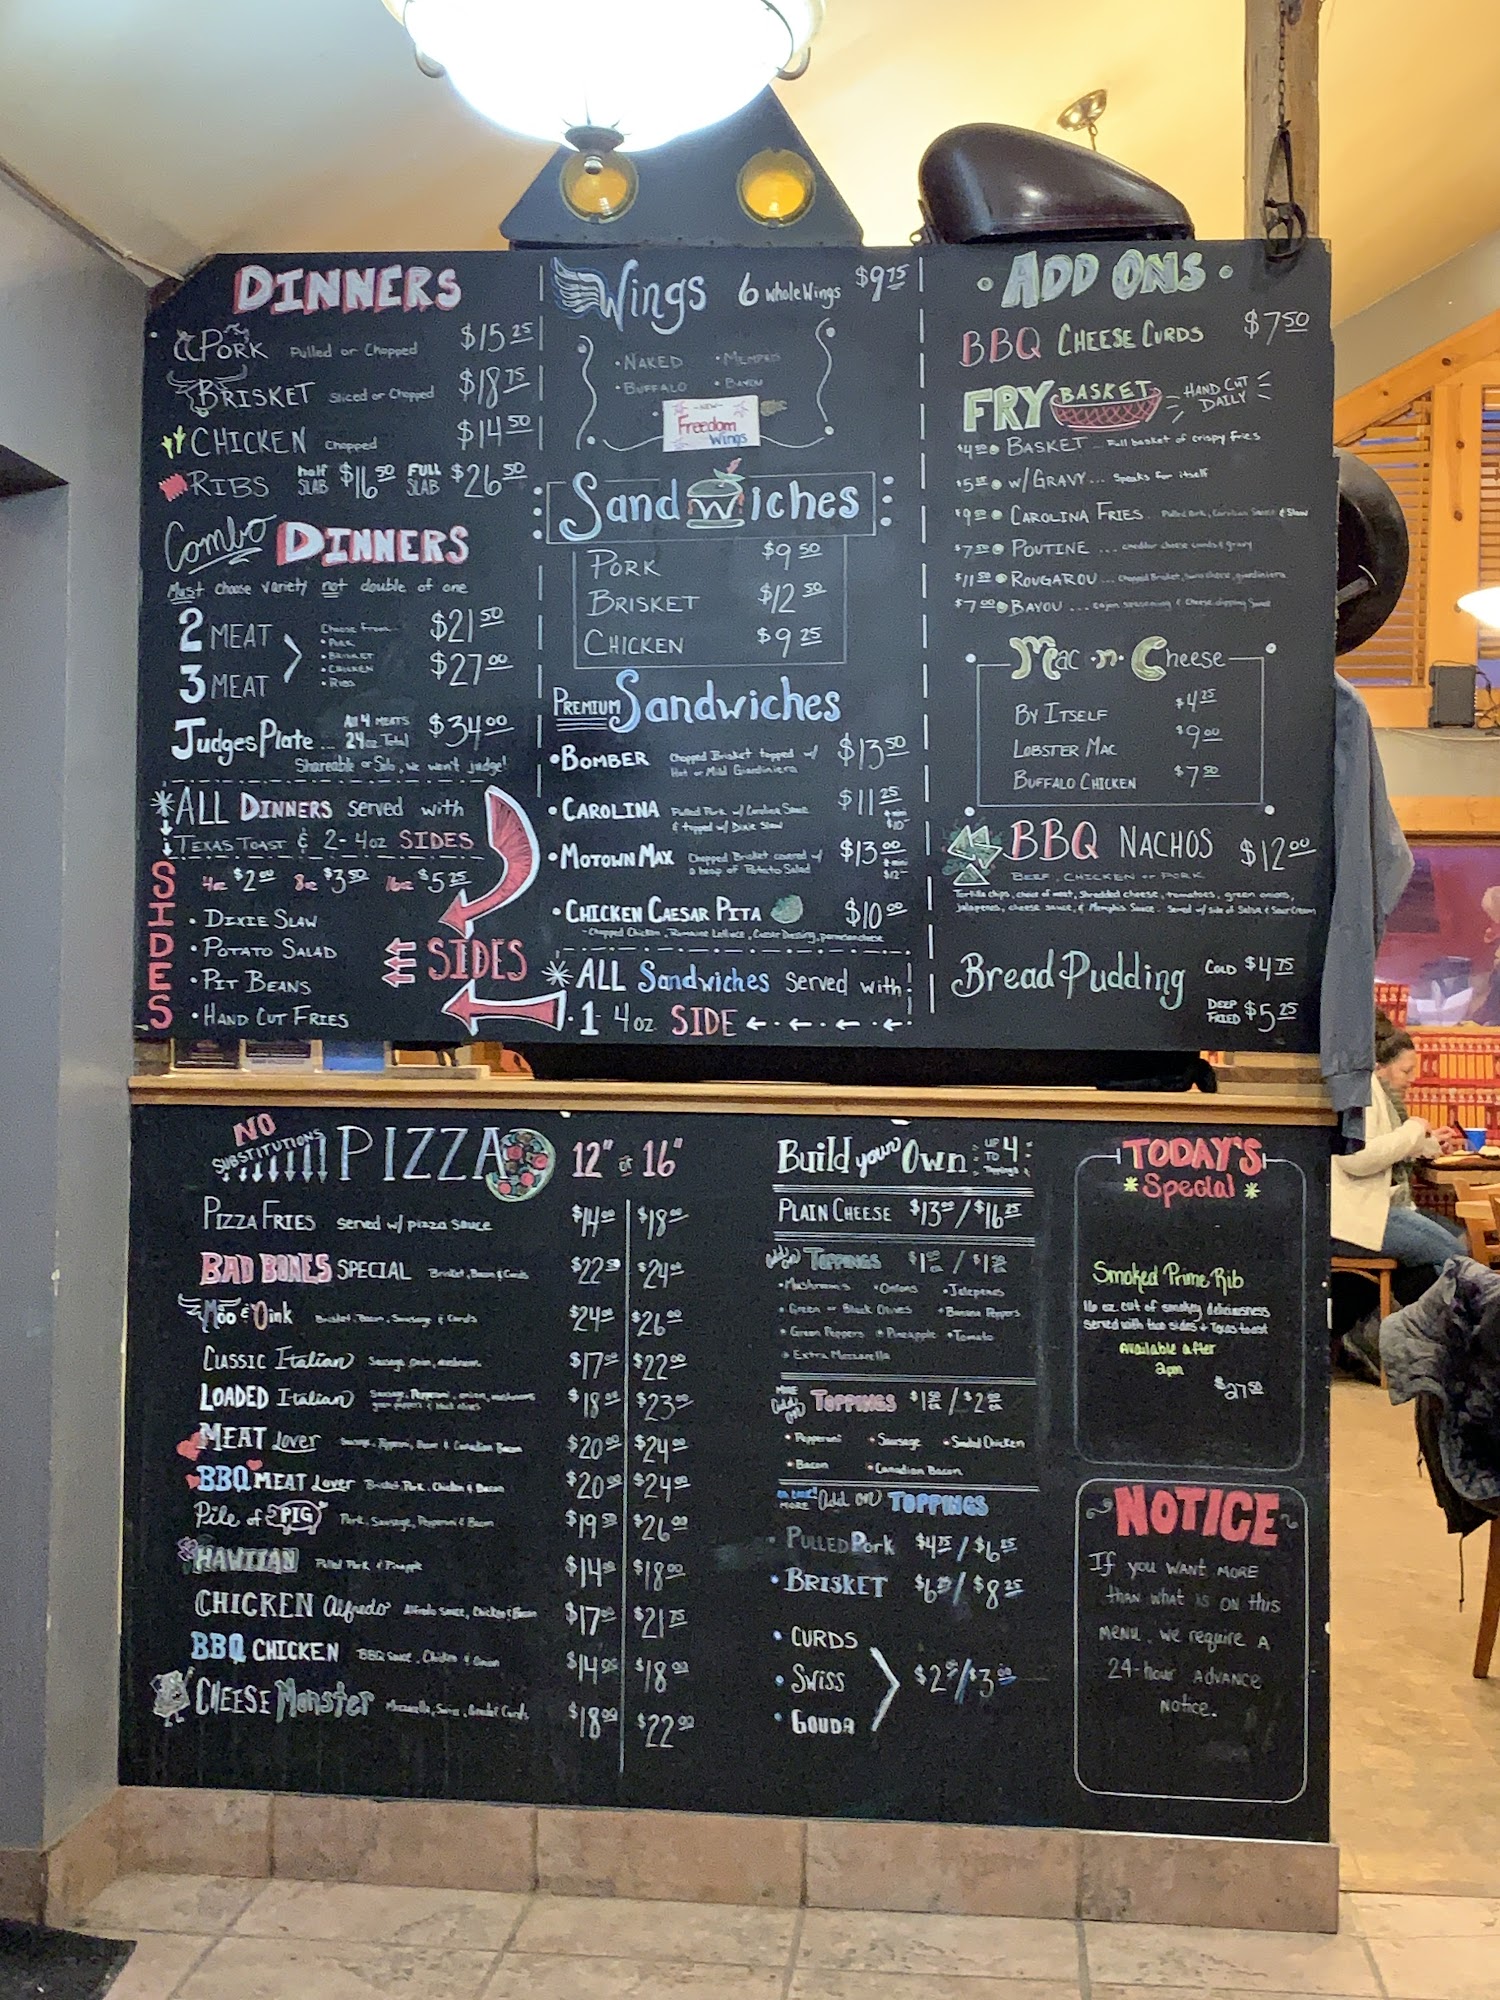 DINNERS
PORK Pulled or Chopped $15 25
BRISKET Sliced or Chopped $18 75
CHICKEN Chopped $14 50
RIBS half SLAB $16 50 FULL SLAB $26 50
Combo DINNERS
Must choose variety not double of one
2 MEAT $21 50
3 MEAT $27 00
Choose From
• PORK
• BRISKET
• CHICKEN
• RIBS
Judges Plate ... All 4 MEATS 24oz Total $34 00
Shareable or Solo, we won't judge!
*ALL DINNERS served with
TEXAS TOAST & 2-4oz SIDES
SIDES
4oz $2 00 8oz $3 50 16oz $5 25
• DIXIE SLAW
• POTATO SALAD
• PIT BEANS
• HAND CUT FRIES
SIDES
Wings 6 whole Wings $9 75
• NAKED • MEMPHIS
• BUFFALO • BAYOU
-NEW-
Freedom
Wings
Sandwiches
PORK $9 50
BRISKET $12 50
CHICKEN $9 25
PREMIUM Sandwiches
• BOMBER Chopped Brisket topped w/ Hot or Mild Giardiniera $13 50
• CAROLINA Pulled Pork w/ Carolina Sauce & topped w/ Dixie Slaw $11 25
• MOTOWN MAX Chopped Brisket covered w/ a heap of Potato Salad $13 00
• CHICKEN CAESAR PITA $10 00
- Chopped Chicken, Romaine Lettuce, Caesar Dressing, parmesan cheese
*ALL Sandwiches Served with
• 1 4oz SIDE
• ADD ONS •
BBQ CHEESE CURDS $7 50
FRY BASKET HAND CUT DAILY
$4 50 • BASKET ... Full basket of crispy fries
$5 • W/ GRAVY ... Speaks for itself
$9 • CAROLINA FRIES Pulled Pork, Carolina Sauce & Slaw
$7 50 • POUTINE ... cheddar cheese curds & gravy
$11 50 • ROUGAROU ... Chopped Brisket, Swiss cheese, giardiniera
$7 00 • BAYOU ... cajun seasoning & Cheese dipping Sauce
Mac • n • Cheese
BY ITSELF $4 25
LOBSTER MAC $9 00
BUFFALO CHICKEN $7 50
BBQ NACHOS $12 00
BEEF, CHICKEN or PORK
Tortilla chips, choice of meat, Shredded cheese, tomatoes, green onions,
jalapenos, cheese sauce, & Memphis Sauce. Served w/ side of Salsa & Sour Cream
Bread Pudding COLD $4 75
DEEP FRIED $5 25
NO SUBSTITUTIONS
PIZZA 12" or 16"
PIZZA FRIES served w/ pizza sauce $14 00 $18 00
BAD BONES SPECIAL Brisket, Bacon & Curds $22 50 $24 00
Moo & Oink Brisket, Bacon, Sausage & Curds $24 00 $26 00
CLASSIC Italian Sausage, onion, mushroom $17 00 $22 00
LOADED Italian Sausage, Pepperoni, onion, mushrooms green peppers & black olives $18 00 $23 00
MEAT Lover Sausage, Pepperoni, Bacon & Canadian Bacon $20 00 $24 00
BBQ MEAT Lover Brisket, Pork, Chicken & Bacon $20 00 $24 00
Pile of PIG Pork, Sausage, Pepperoni & Bacon $19 50 $26 00
HAWIIAN Pulled Pork & Pineapple $14 00 $18 00
CHICKEN Alfredo Alfredo Sauce, Chicken & Bacon $17 00 $21 75
BBQ CHICKEN BBQ Sauce, Chicken & Onion $14 $18 00
CHEESE Monster Mozzarella, Swiss, Gouda & Curds $18 00 $22 00
Build your Own UP TO 4 Toppings
PLAIN CHEESE $13 00 / $16 25
add on TOPPINGS
• Mushrooms • Onions • Jalepenos
• Green or Black Olives • Banana Peppers
• Green Peppers • Pineapple • Tomato
• Extra Mozzarella
MORE add on TOPPINGS $1 50 ea / $2 00 ea
• Pepperoni • Sausage • Smoked Chicken
• Bacon • Canadian Bacon
MORE add on TOPPINGS
• PULLED PORK $4 75 / $6 25
• BRISKET $6 / $8 25
• CURDS
• SWISS $2 / $3
• GOUDA
TODAY'S
* Special *
Smoked Prime Rib
16 oz cut of smokey deliciousness
served with two sides + Texas toast
Available after
2pm
$27 50
NOTICE
If you WANT MORE
THAN WHAT IS ON this
MENU, we require A
24-hour ADVANCE
Notice.